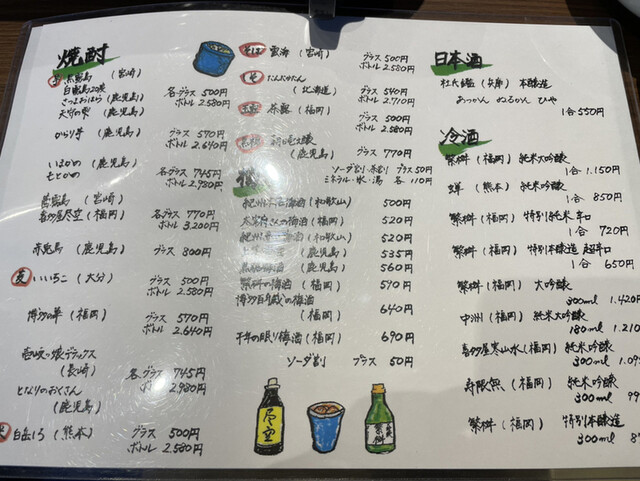 焼酎
芋 黒霧島 (宮崎)
白霧島20度
さつまおはら (鹿児島) 各・グラス 500円
天守の雫 (鹿児島) ボトル 2.580円
からり芋 (鹿児島) グラス 570円
ボトル 2.640円
(鹿児島) 各・グラス 745円
ボトル 2.980円
(宮崎) 各・グラス 770円
喜多屋尽空 (福岡) ボトル 3.200円
赤兎馬 (鹿児島) グラス 800円
麦 いいちこ (大分) グラス 500円
ボトル 2.580円
博多の華 (福岡) グラス 570円
ボトル 2.640円
壱岐っ娘デラックス
(長崎) 各・グラス 745円
となりのおくさん ボトル 2.980円
(鹿児島)
米 白岳しろ (熊本) グラス 500円
ボトル 2.580円
そば 雲海 (宮崎) グラス 500円
ボトル 2.580円
たんたかたん グラス 540円
(北海道) ボトル 2.710円
茶露 (福岡) グラス 500円
ボトル 2.580円
(鹿児島) グラス 770円
ソーダ割・茶割 グラス 50円
ミネラル・氷・湯 各 110円
(和歌山) 500円
梅酒 (福岡) 520円
梅酒 (和歌山) 520円
(鹿児島) 535円
黒糖梅酒 (鹿児島) 560円
繁桝の梅酒 (福岡) 590円
博多百年蔵の梅酒
(福岡) 640円
千年の眠り梅酒 (福岡) 690円
ソーダ割 グラス 50円
尽空
繁桝
日本酒
杜氏鑑 (兵庫) 本醸造
あつかん ぬるかん ひや
1合 550円
冷酒
繁桝 (福岡) 純米大吟醸
1合 1.150円
蝉 (熊本) 純米吟醸
1合 850円
繁桝 (福岡) 特別純米 辛口
1合 720円
繁桝 (福岡) 特別本醸造 超辛口
1合 650円
繁桝 (福岡) 大吟醸
300ml 1.420
中洲 (福岡) 純米大吟醸
180ml 1.210
喜多屋寒山水 (福岡) 純米吟醸
300ml 1.09
寿限無 (福岡) 純米吟醸
300ml 99
繁桝 (福岡) 特別本醸造
300ml 8